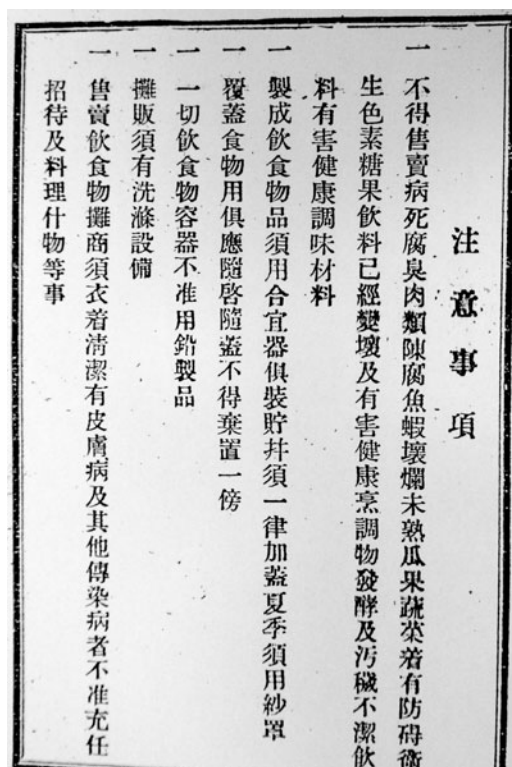 注意事項
一 不得售賣病死腐臭肉類陳腐魚蝦壞爛未熟瓜果蔬菜着有防碍衛
生色素糖果飲料已經變壞及有害健康烹調物發酵及汚穢不潔飲
料有害健康調味材料
一 製成飲食物品須用合宜器俱裝貯幷須一律加蓋夏季須用紗罩
一 覆蓋食物用俱應隨啓隨蓋不得棄置一傍
一 一切飲食物容器不准用鉛製品
一 攤販須有洗滌設備
一 售賣飲食物攤商須衣着清潔有皮膚病及其他傳染病者不准充任
招待及料理什物等事